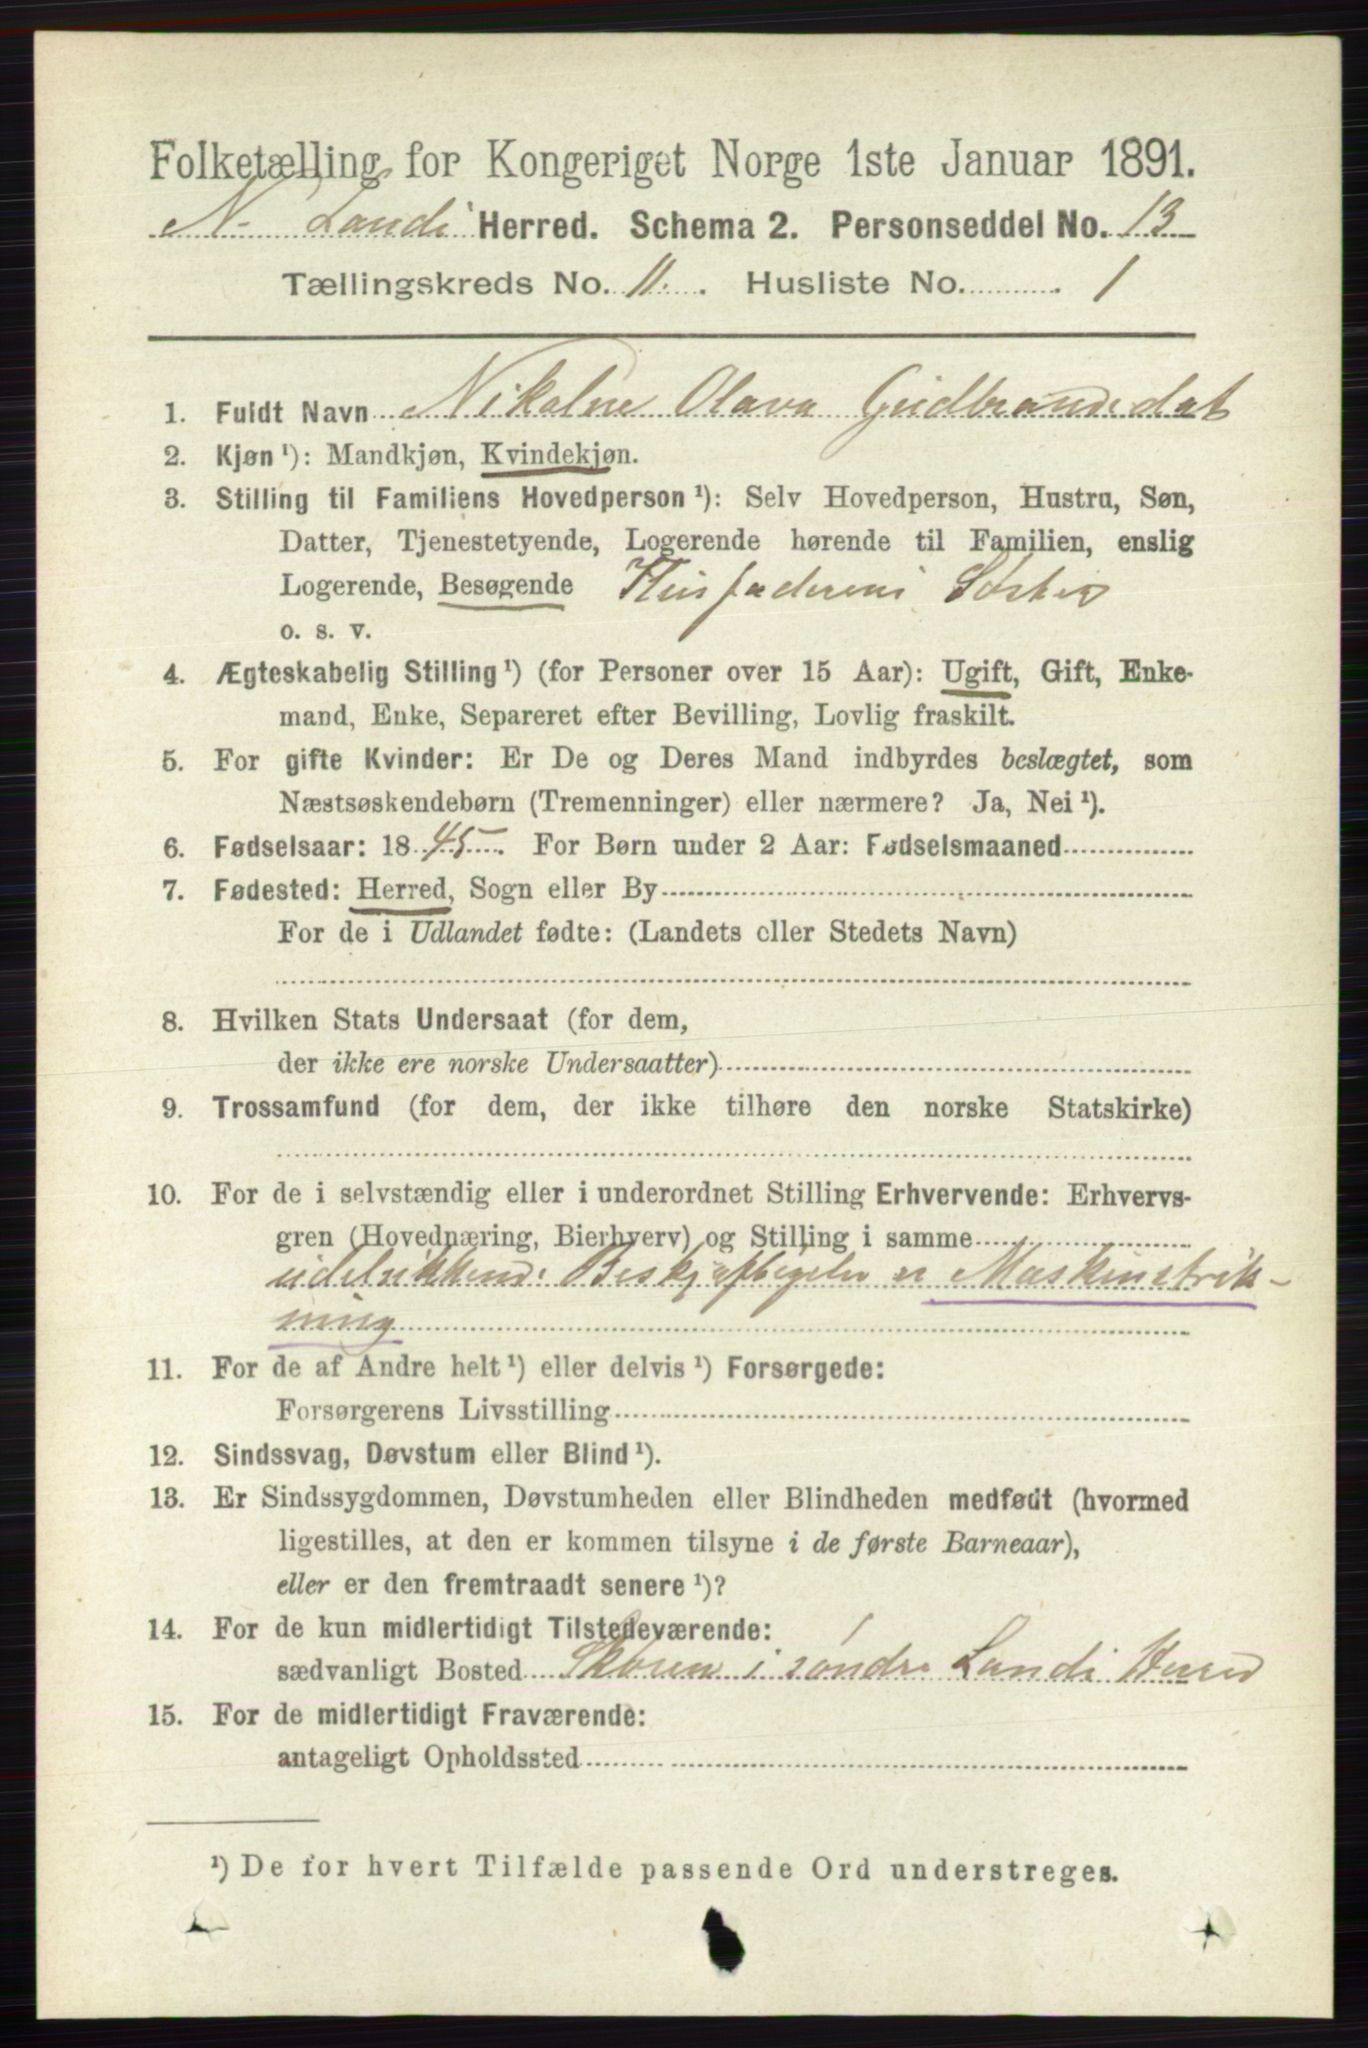 Folketælling for Kongeriget Norge 1ste Januar 1891.
N. Lands Herred. Schema 2. Personseddel No. 13
Tællingskreds No. 11. Husliste No. 1
1. Fuldt Navn Nikoline Olava Gudbrandsdat
2. Kjøn ¹): Mandkjøn, Kvindekjøn.
3. Stilling til Familiens Hovedperson ¹): Selv Hovedperson, Hustru, Søn,
Datter, Tjenestetyende, Logerende hørende til Familien, enslig
Logerende, Besøgende Husfaderens Søster
o. s. v.
4. Ægteskabelig Stilling ¹) (for Personer over 15 Aar): Ugift, Gift, Enke-
mand, Enke, Separeret efter Bevilling, Lovlig fraskilt.
5. For gifte Kvinder: Er De og Deres Mand indbyrdes beslægtet, som
Næstsøskendebørn (Tremenninger) eller nærmere? Ja, Nei ¹).
6. Fødselsaar: 1845. For Børn under 2 Aar: Fødselsmaaned
7. Fødested: Herred, Sogn eller By
For de i Udlandet fødte: (Landets eller Stedets Navn)
8. Hvilken Stats Undersaat (for dem,
der ikke ere norske Undersaatter)
9. Trossamfund (for dem, der ikke tilhøre den norske Statskirke)
10. For de i selvstændig eller i underordnet Stilling Erhvervende: Erhvervs-
gren (Hovednæring, Bierhverv) og Stilling i samme
Beskjæftigelse er Maskinstrik-
ning
11. For de af Andre helt ¹) eller delvis ¹) Forsørgede:
Forsørgerens Livsstilling
12. Sindssvag, Døvstum eller Blind ¹).
13. Er Sindssygdommen, Døvstumheden eller Blindheden medfødt (hvormed
ligestilles, at den er kommen tilsyne i de første Barneaar),
eller er den fremtraadt senere ¹)?
14. For de kun midlertidigt Tilstedeværende:
sædvanligt Bosted Skøien i søndre Lands Herred
15. For de midlertidigt Fraværende:
antageligt Opholdssted
¹) De for hvert Tilfælde passende Ord understreges.